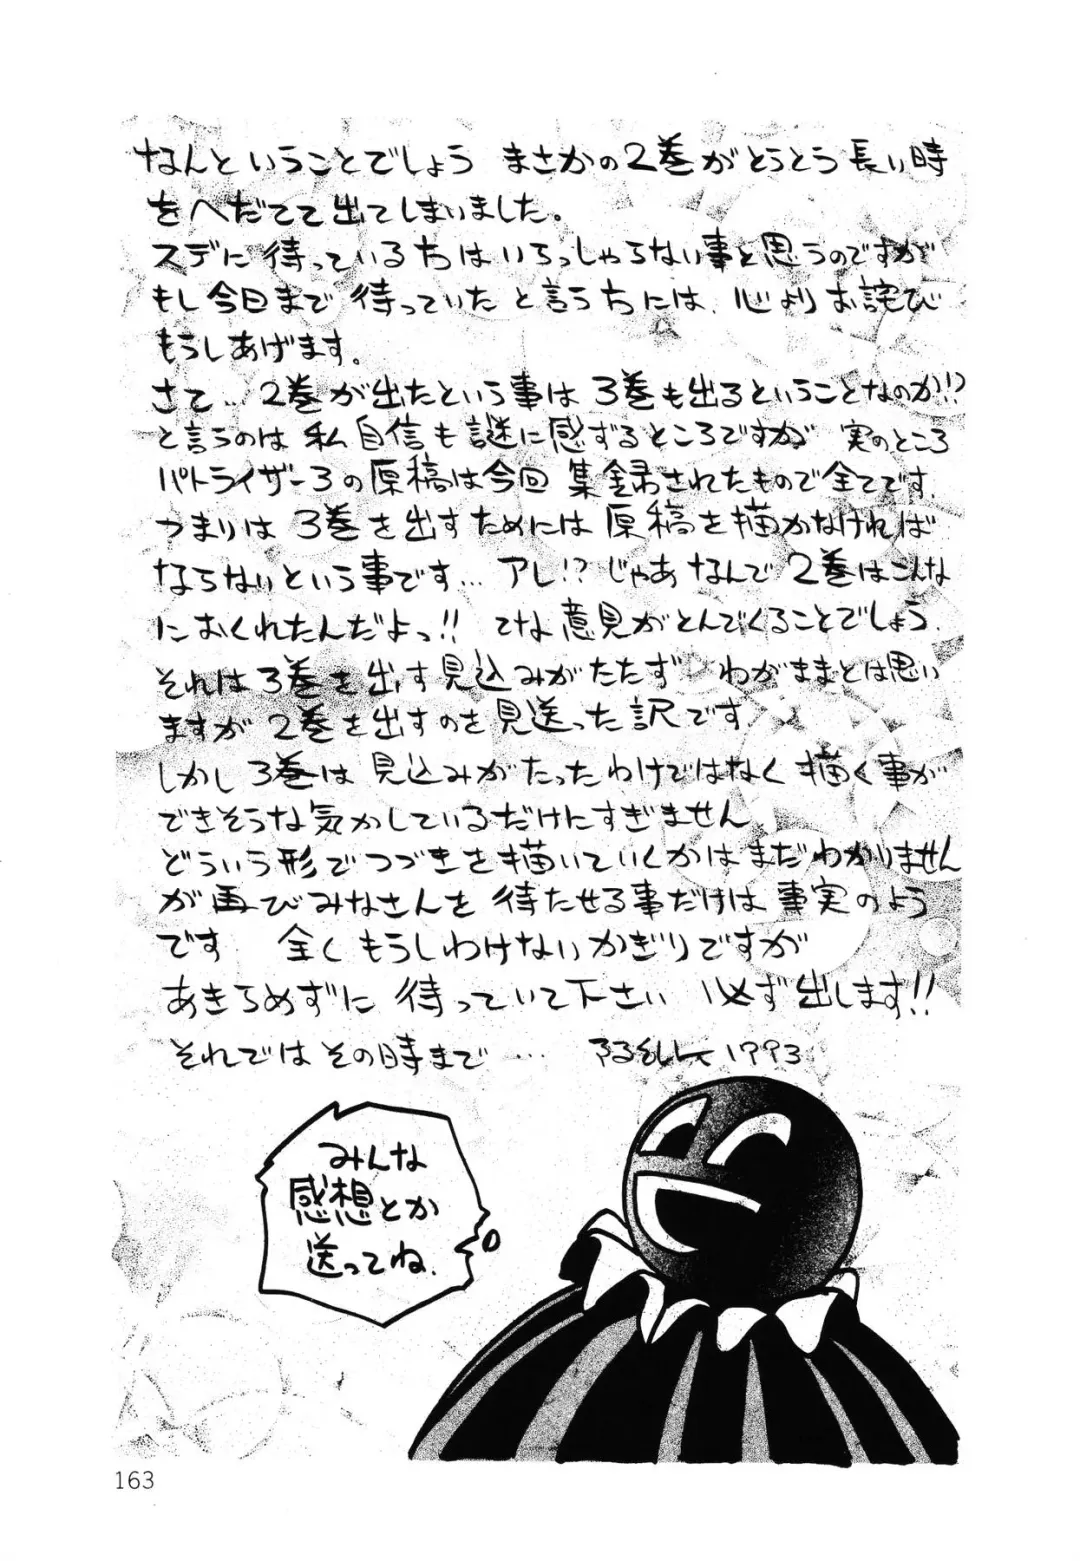 なんということでしょう まさかの2巻がとうとう長い時
をへだてて出てしまいました。
スデに待っている方はいらっしゃらない事と思うのですが
もし今日まで待っていたと言う方には、心よりお詫び
もうしあげます。
さて‥2巻が出たという事は3巻も出るということなのか!?
と言うのは私自信も謎に感ずるところですが 実のところ
パトライザー3の原稿は今回集録されたもので全てです。
つまりは3巻を出すためには原稿を描かなければ
ならないという事です… アレ!? じゃあなんで2巻はこんな
におくれたんだよっ!! てな意見がとんでくることでしょう。
それは3巻を出す見込みがたたず わがままとは思い
ますが2巻を出すのを見送った訳です
しかし3巻は見込みがたったわけではなく描く事が
できそうな気がしているだけにすぎません
どういう形でつづきを描いていくかはまだわかりません
が再びみなさんを待たせる事だけは事実のよう
です 全くもうしわけないかぎりですが
あきらめずに待っていて下さい 必ず出します!!
それではその時まで…‥ 1993
みんな
感想とか
送ってね.
163